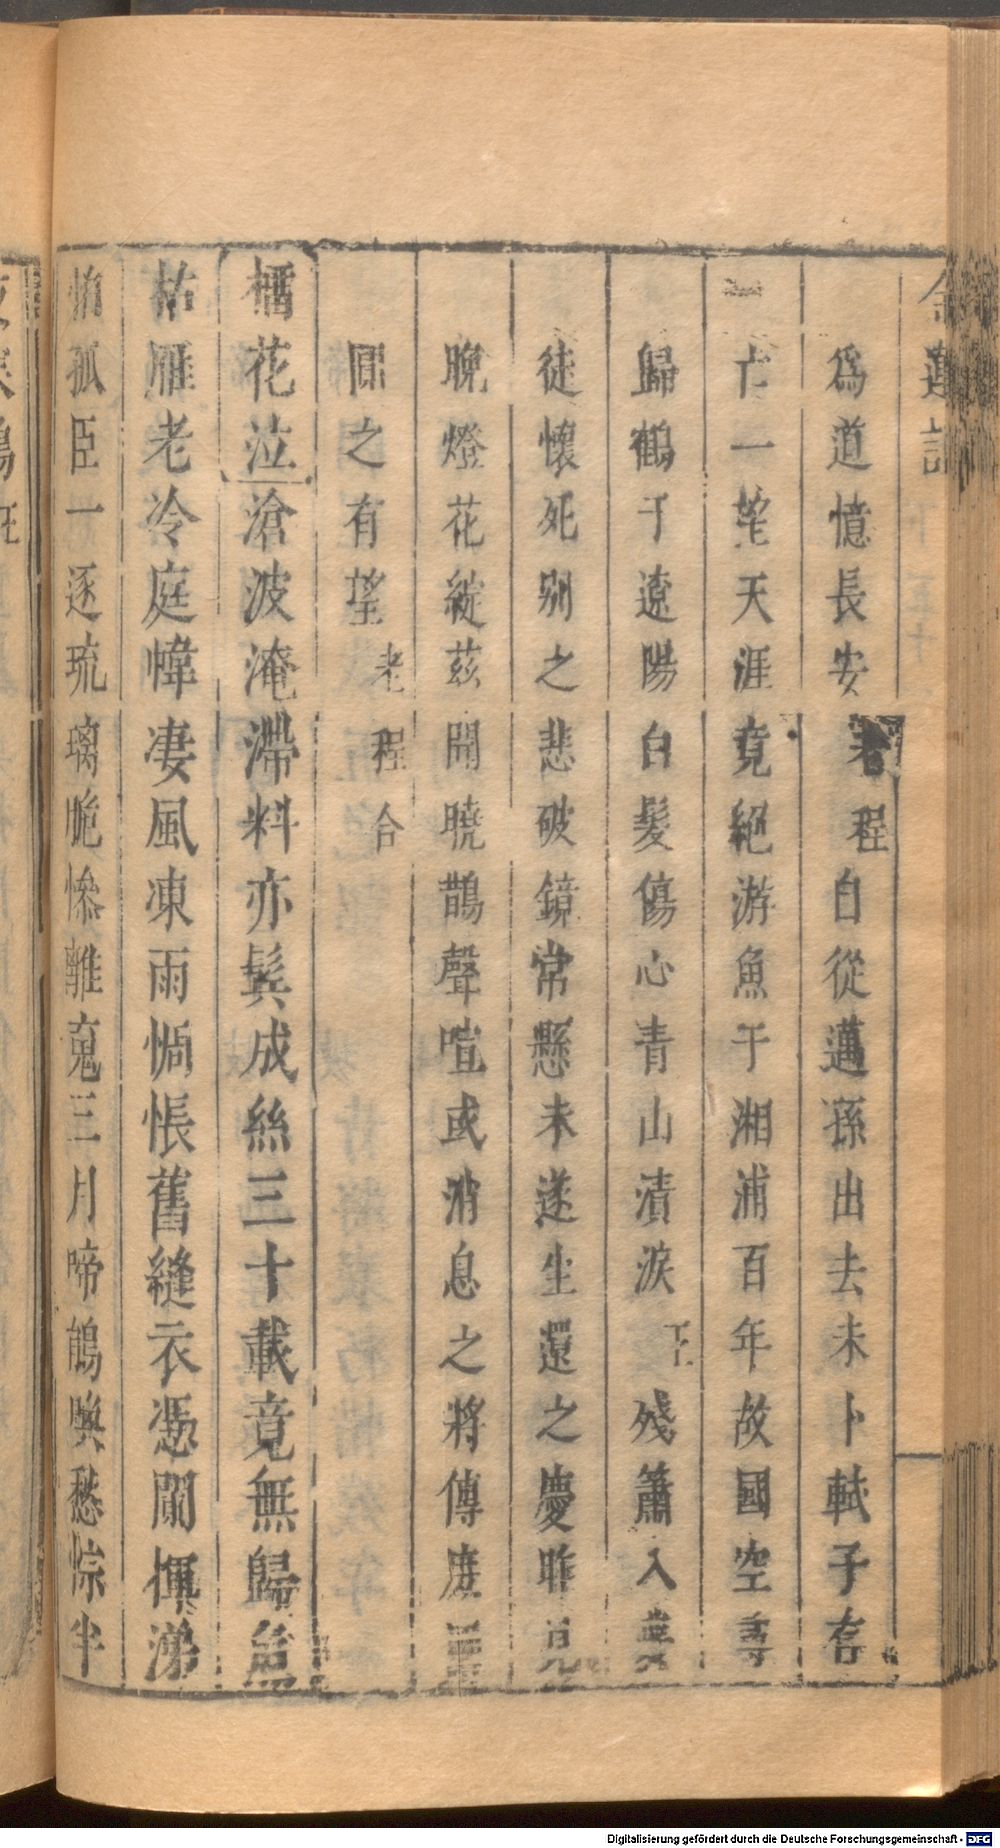 金蓮記
為道憶長安 老程 自從邁孫出去未卜軾子存
亡一望天涯竟絕游魚于湘浦百年故國空尋
歸鶴于遼陽白髮傷心青山漬淚 王 殘簫入
徒懷死別之悲破鏡常懸未遂生還之慶昨見
晚燈花綻茲聞曉鵲聲喧或消息之將傳庶
圓之有望 老程合
花泣滄波淹滯料亦鬂成絲三十載竟無歸
枯雁老冷庭幃凄風凍雨惆悵舊縫衣憑闌揮涕
孤臣一逐琉璃脆慘離䰟三月啼鵑喚愁悰半
Digitalisierung gefördert durch die Deutsche Forschungsgemeinschaft - DFG